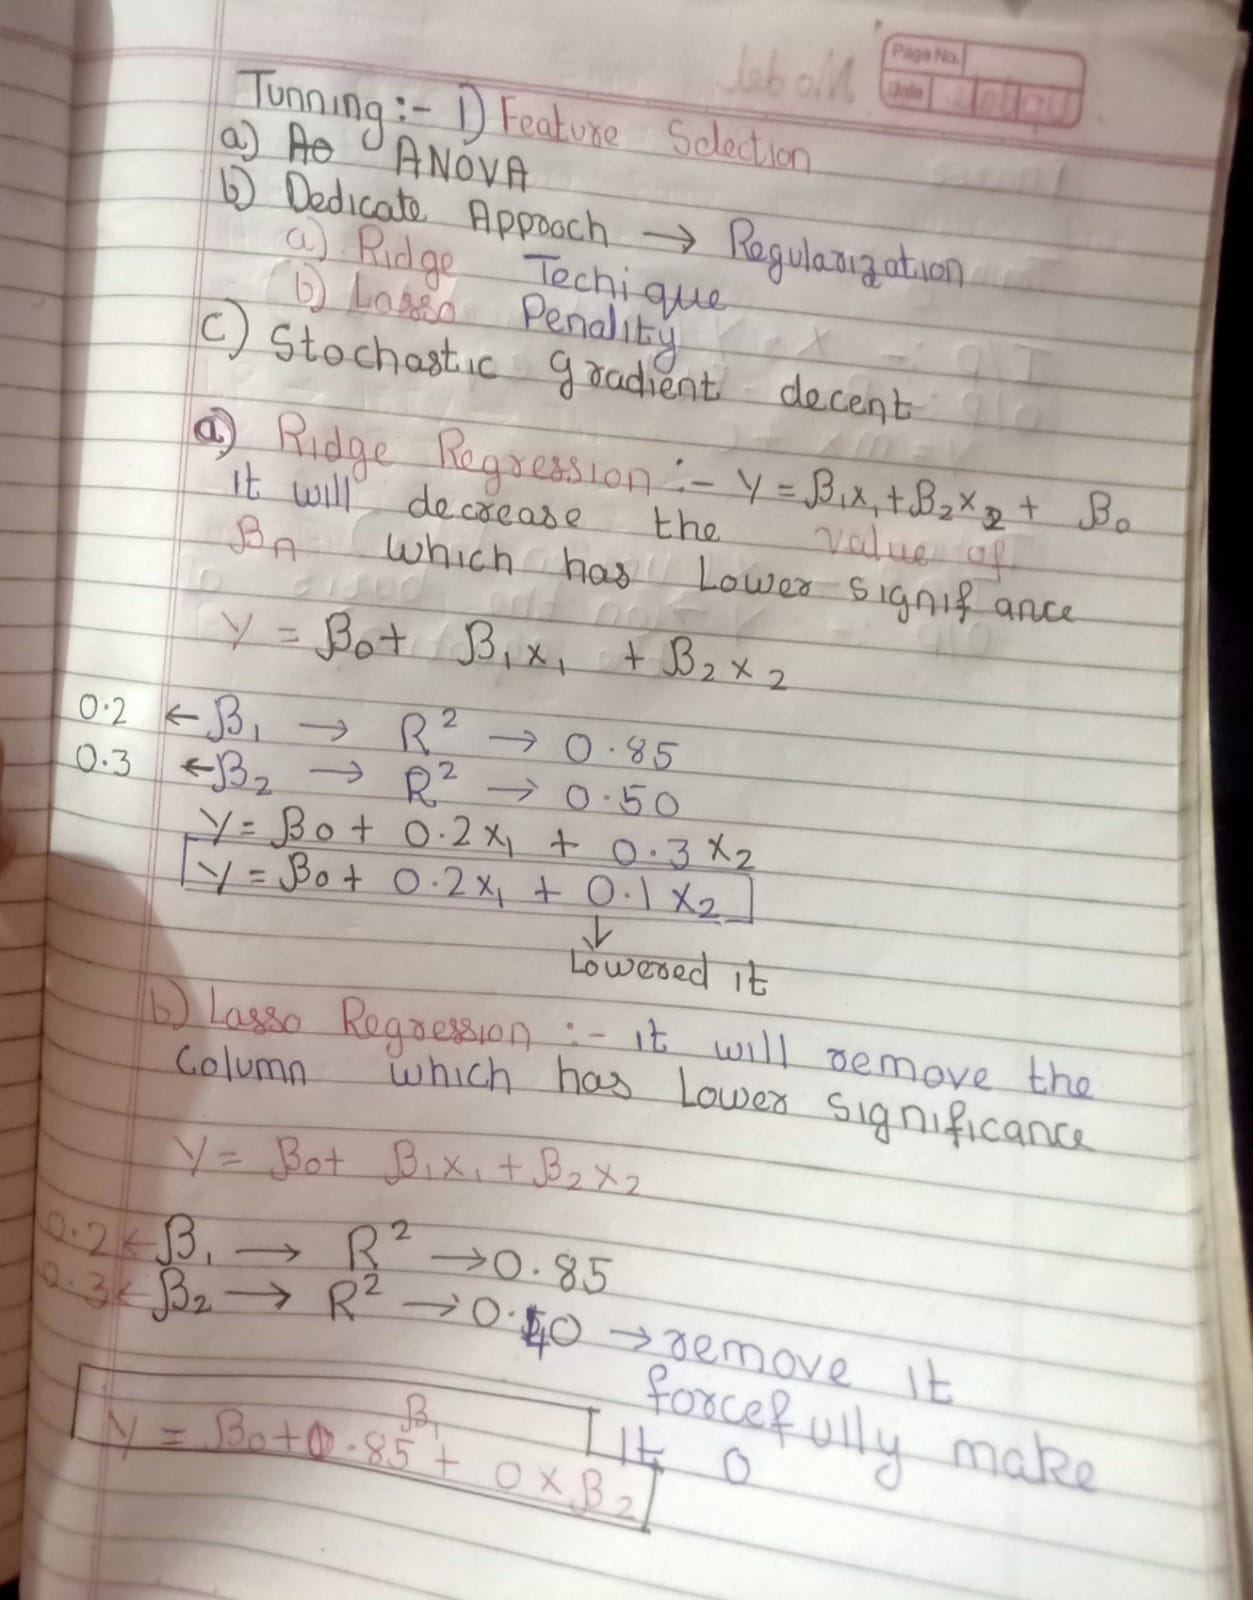 Page No.
Date
Tunning :- 1) Feature Selection
a) Ao ANOVA
b) Dedicate Approach → Regularization
a) Ridge Techique
b) Lasso Penality
c) Stochastic gradient decent
a) Ridge Regression :- Y = β₁x₁ + β₂x₂ + β₀
it will decrease the value of
βn which has Lower signifance
Y = β₀ + β₁x₁ + β₂x₂
0.2 ← β₁ → R² → 0.85
0.3 ← β₂ → R² → 0.50
Y = β₀ + 0.2x₁ + 0.3x₂
Y = β₀ + 0.2x₁ + 0.1x₂
↓
Lowered it
b) Lasso Regression :- it will remove the
column which has Lower significance
Y = β₀ + β₁x₁ + β₂x₂
0.2 ← β₁ → R² → 0.85
0.3 ← β₂ → R² → 0.40 → remove it
forcefully make
it 0
β₁
Y = β₀ + 0.85 + 0 × β₂